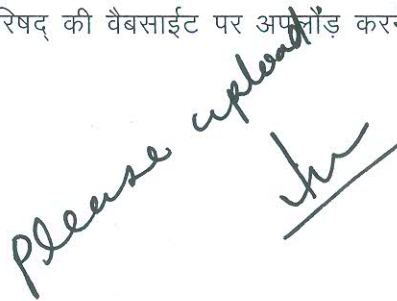 रिषद् की वैबसाईट पर अपलौंड़ कर
please upload